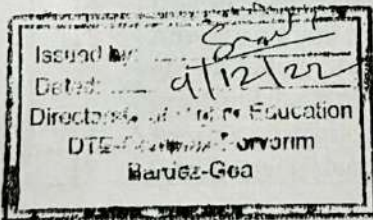 Issued by:
Dated: 9/12/22
Directorate of Higher Education
DTE- Porvorim
Bardez-Goa